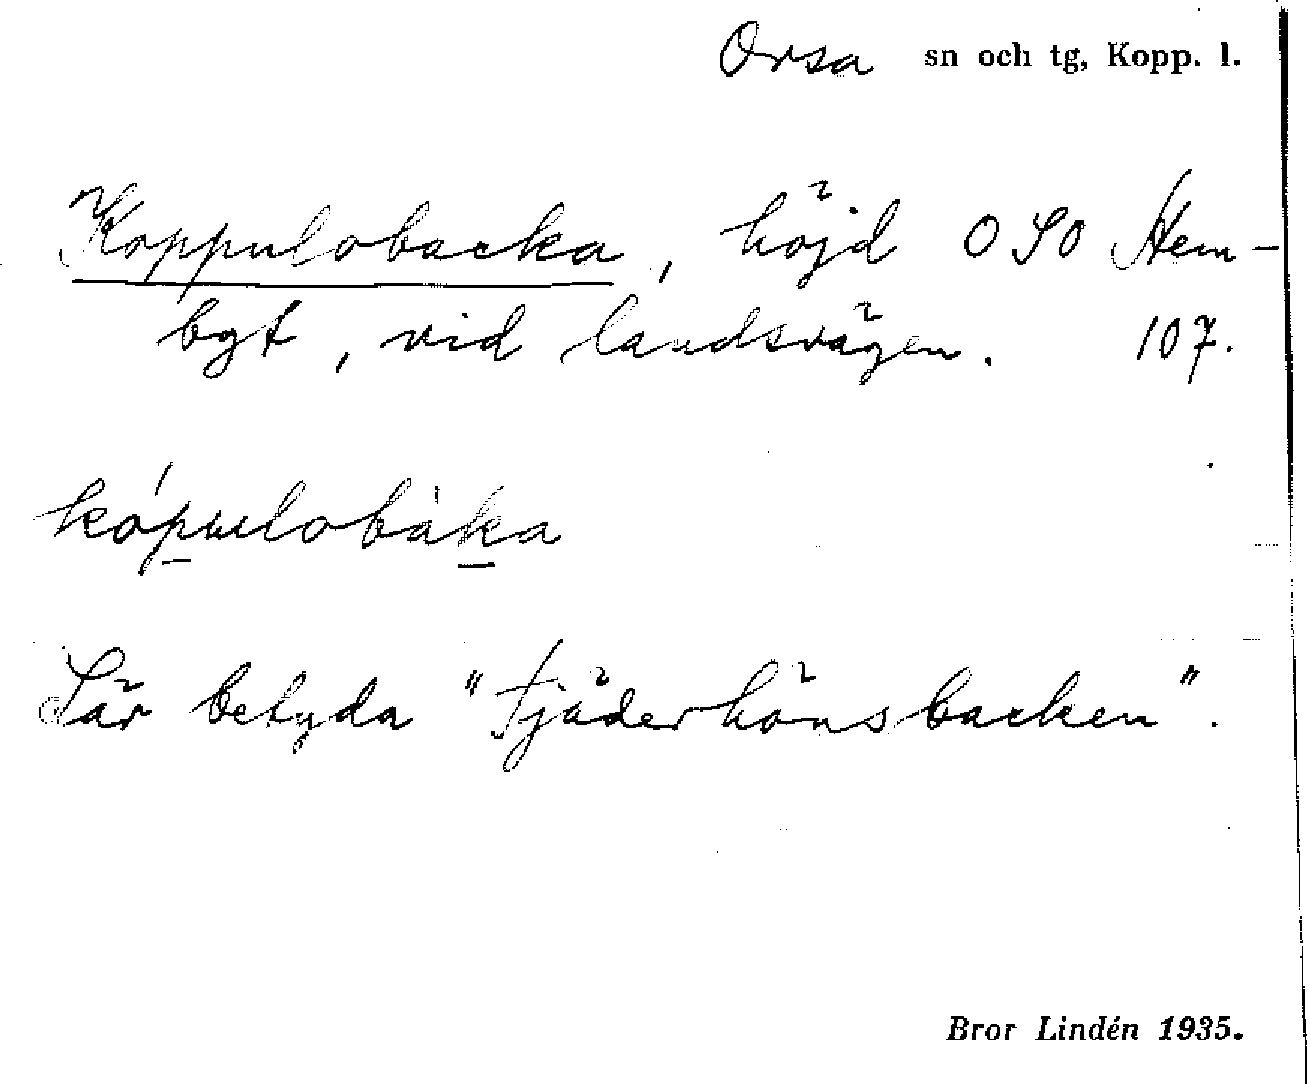 Orsa sn och tg, Kopp. l.
Koppulobacka, höjd OSO Hem-
bgt, vid landsvägen. 107.
kópulobàka
Lär betyda "tjäderhönsbacken".
Bror Lindén 1935.